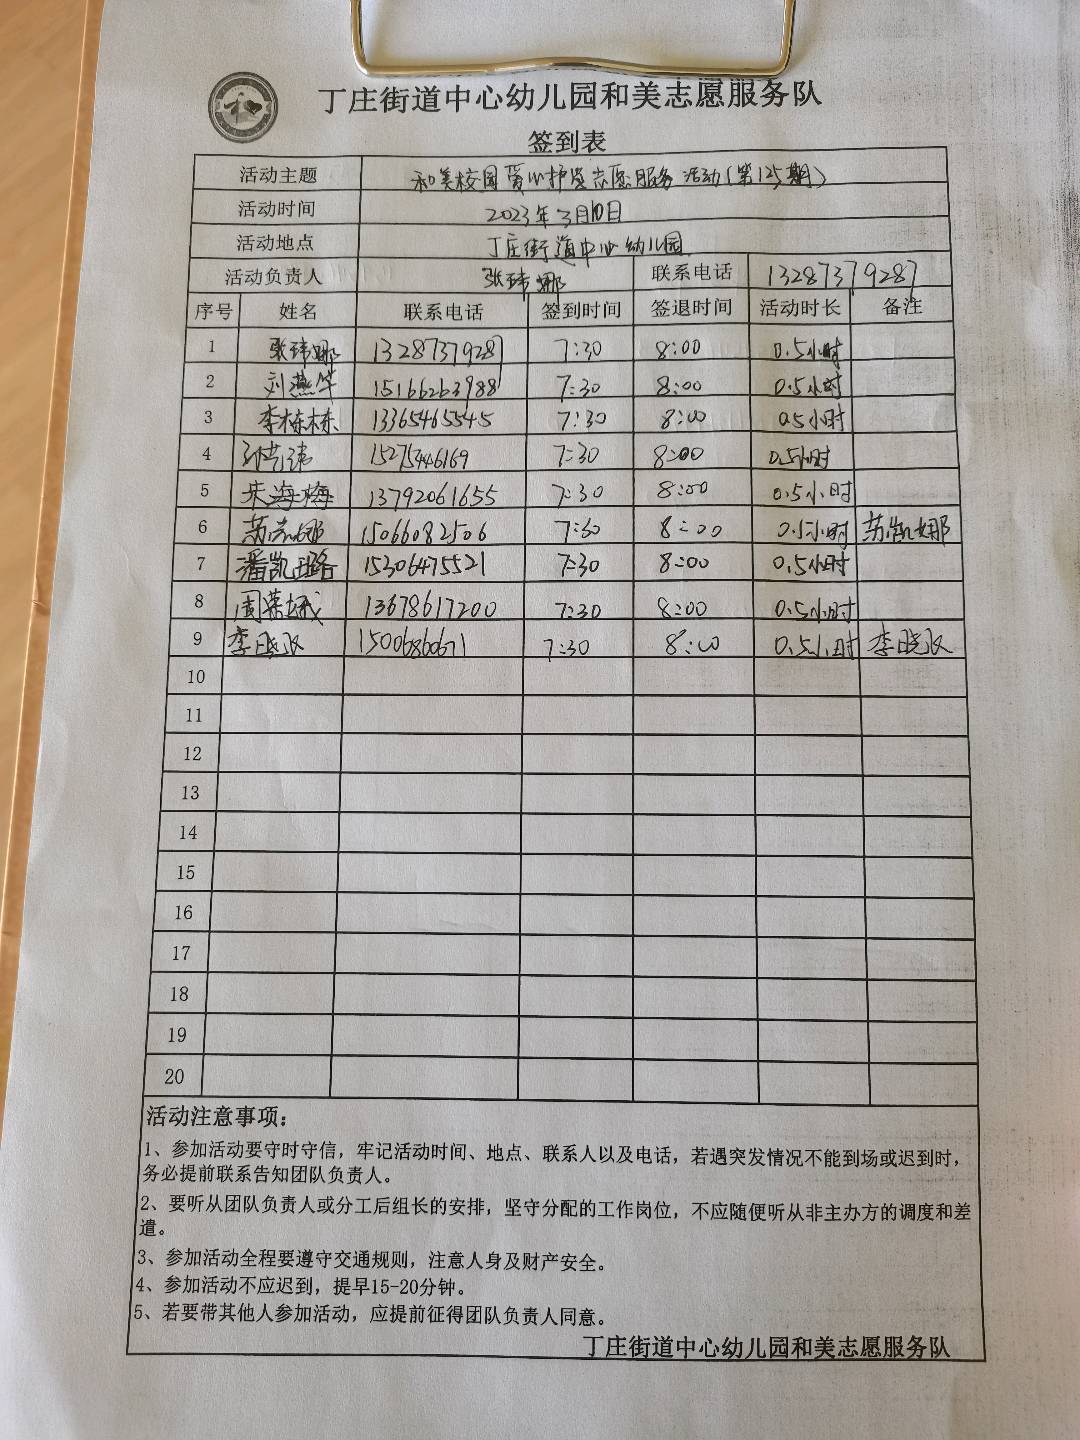 丁庄街道中心幼儿园和美志愿服务队
签到表
活动主题 和美校园爱心护学志愿服务活动(第125期)
活动时间 2023年3月10日
活动地点 丁庄街道中心幼儿园
活动负责人 张玮娜 联系电话 13287379287
序号 姓名 联系电话 签到时间 签退时间 活动时长 备注
1 张玮娜 13287379287 7:30 8:00 0.5小时
2 刘燕华 15166263988 7:30 8:00 0.5小时
3 李栋栋 13365465545 7:30 8:00 0.5小时
4 15275446169 7:30 8:00 0.5小时
5 朱海梅 13792061655 7:30 8:00 0.5小时
6 苏凯娜 15066082506 7:30 8:00 0.5小时 苏凯娜
7 潘凯璐 15306475521 7:30 8:00 0.5小时
8 周荣娥 13678617200 7:30 8:00 0.5小时
9 李晓双 15006860671 7:30 8:00 0.5小时 李晓双
10
11
12
13
14
15
16
17
18
19
20
活动注意事项：
1、参加活动要守时守信，牢记活动时间、地点、联系人以及电话，若遇突发情况不能到场或迟到时，
务必提前联系告知团队负责人。
2、要听从团队负责人或分工后组长的安排，坚守分配的工作岗位，不应随便听从非主办方的调度和差
遣。
3、参加活动全程要遵守交通规则，注意人身及财产安全。
4、参加活动不应迟到，提早15-20分钟。
5、若要带其他人参加活动，应提前征得团队负责人同意。
丁庄街道中心幼儿园和美志愿服务队